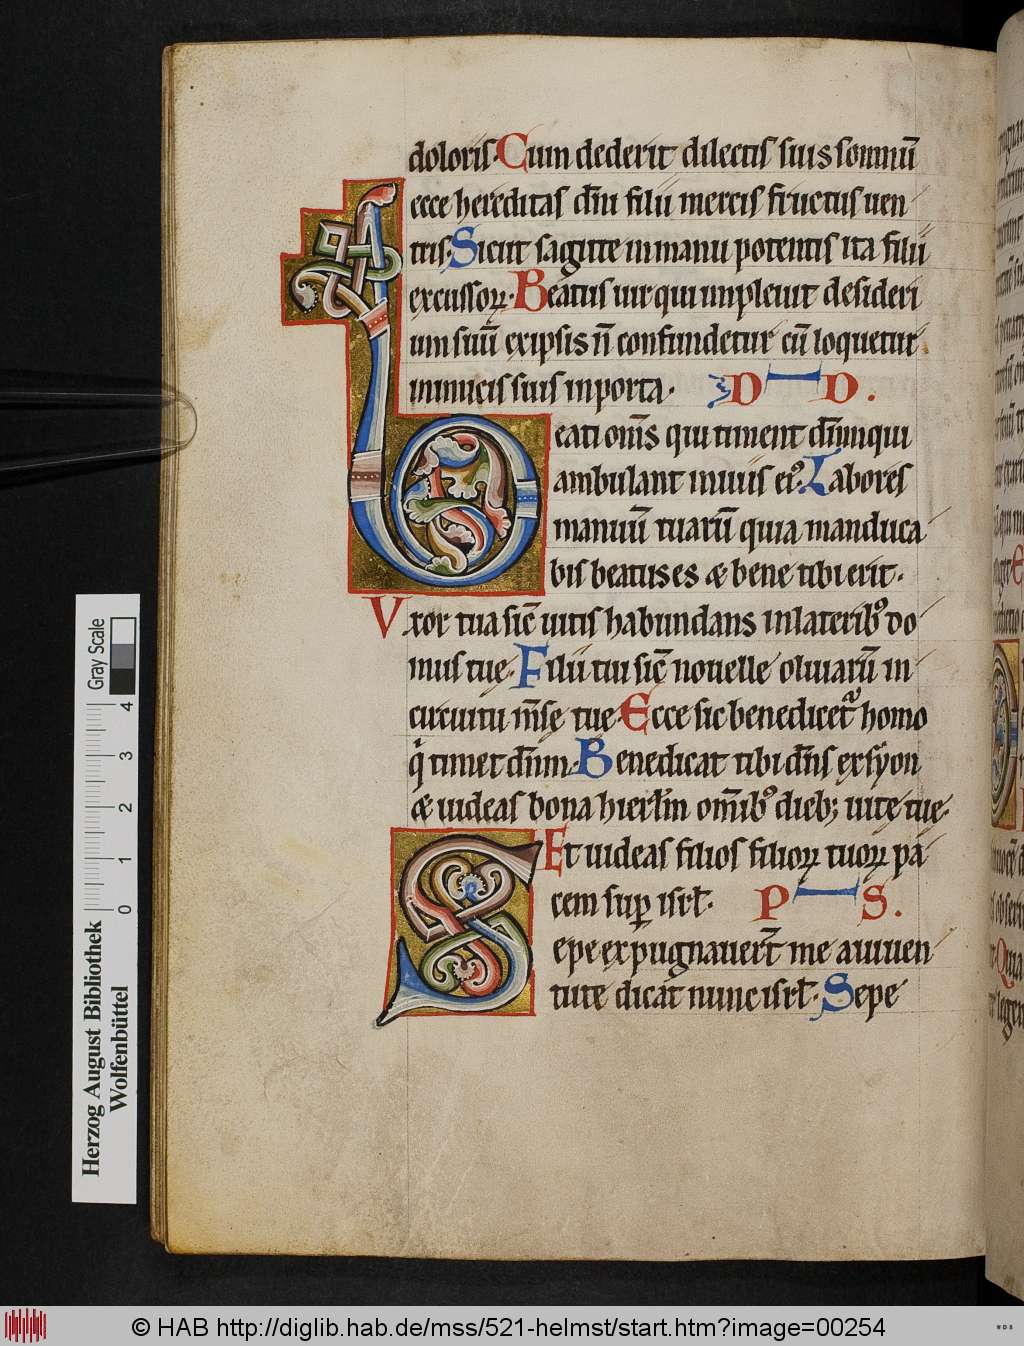 doloris. Cum dederit dilectis suis somnū
ecce hereditas dn̄i filii merces fructus uen
tris. Sicut sagitte in manu potentis ita filii
excussoꝝ. Beatus uir qui impleuit desideri
um suū ex ipsis n̄ confundetur cū loquetur
inimicis suis in porta. D D.
Beati om̄s qui timent dn̄m qui
ambulant in uiis eiꝰ. Labores
manuū tuarū quia manduca
bis beatus es & bene tibi erit.
Vxor tua sic̄ uitis habundans in lateribꝰ do
mus tue. Filii tui sic̄ nouelle oliuarū in
circuitu m̄sę tue. Ecce sic benedicetᷓ homo
qͥ timet dn̄m. Benedicat tibi dn̄s ex syon
& uideas bona hierłm om̄ibꝰ dieb; uitę tuę.
Et uideas filios filioꝝ tuoꝝ pa
cem sup̄ isrł. P S.
Sepe expugnauer̄t me a iuuen
tute dicat nunc isrł. Sepe
Gray Scale
4
3
2
1
0
Herzog August Bibliothek
Wolfenbüttel
© HAB http://diglib.hab.de/mss/521-helmst/start.htm?image=00254